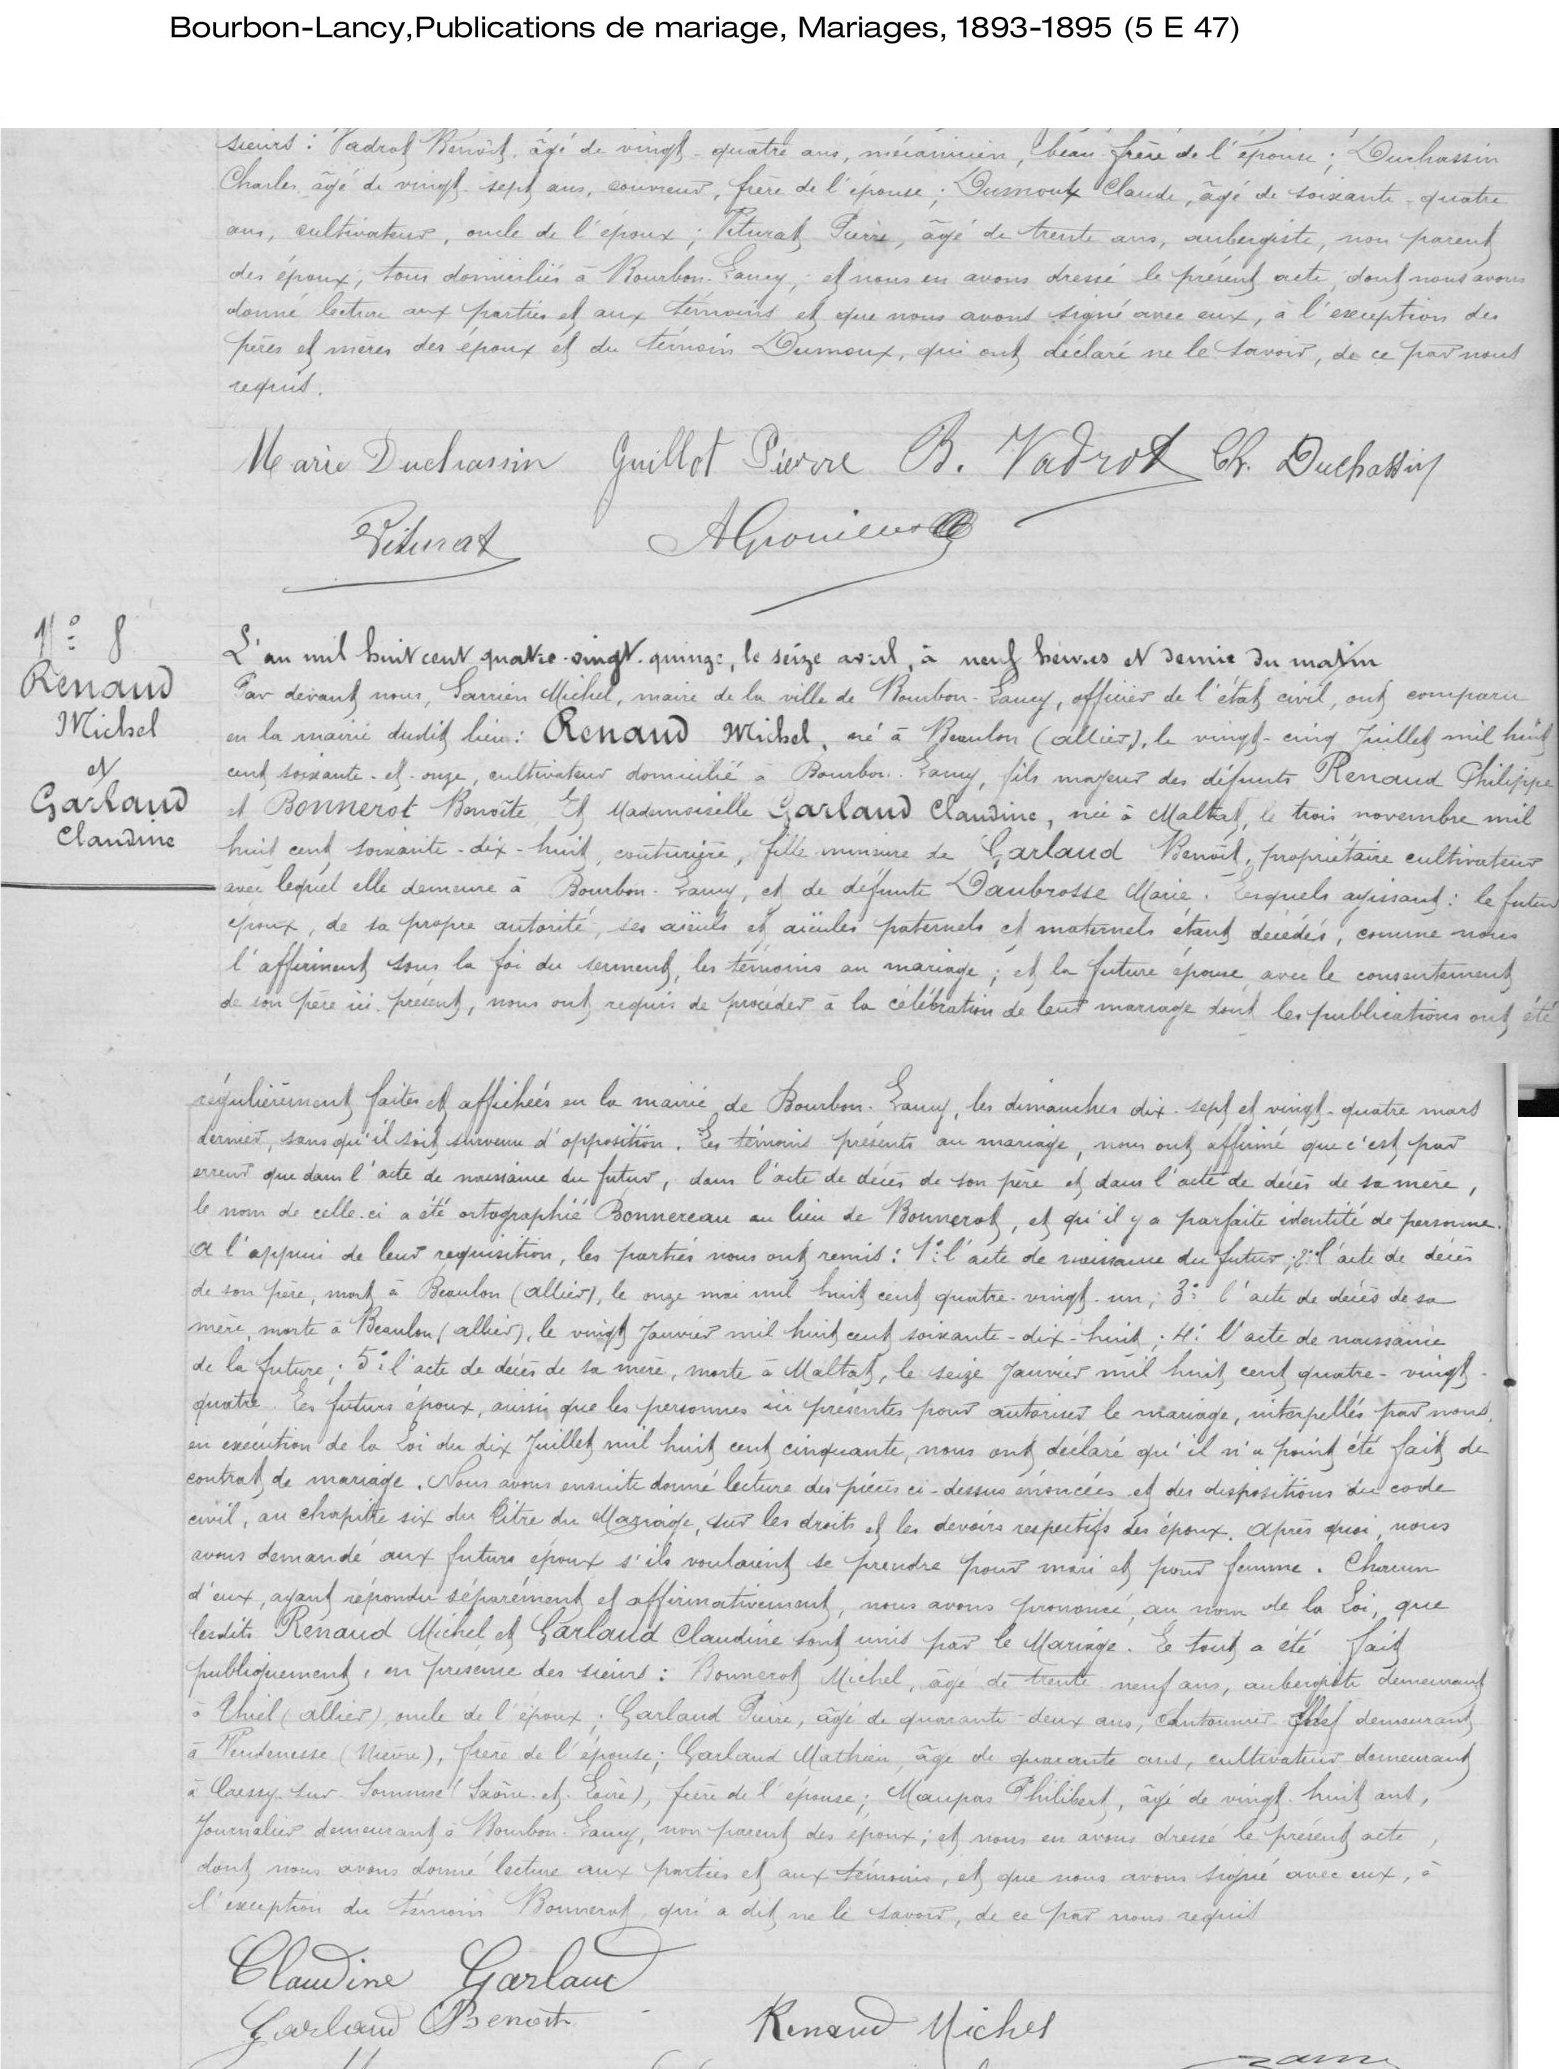 Bourbon-Lancy,Publications de mariage, Mariages, 1893-1895 (5 E 47)
sieurs : Vadrot Benoît, âgé de vingt-quatre ans, mécanicien, beau frère de l'épouse ; Duchassin
Charles, âgé de vingt-sept ans, couvreur, frère de l'épouse ; Dumoux Claude, âgé de soixante-quatre
ans, cultivateur, oncle de l'époux ; Piturat Pierre, âgé de trente ans, aubergiste, non parent
des époux ; tous domiciliés à Bourbon-Lancy ; et nous en avons dressé le présent acte, dont nous avons
donné lecture aux parties et aux témoins et que nous avons signé avec eux, à l'exception des
pères et mères des époux et du témoin Dumoux, qui ont déclaré ne le savoir, de ce par nous
requis.
Marie Duchassin Guillot Pierre B. Vadrot Ch. Duchassin
Piturat
N° 8
Renaud
Michel
et
Garlaud
Claudine
L'an mil huit cent quatre-vingt-quinze, le seize avril, à neuf heures et demie du matin
Par devant nous, Sarrien Michel, maire de la ville de Bourbon-Lancy, officier de l'état civil, ont comparu
en la mairie dudit lieu : Renaud Michel, né à Beaulon (allier), le vingt-cinq Juillet mil huit
cent soixante-et-onze, cultivateur domicilié à Bourbon-Lancy, fils majeur des défunts Renaud Philippe
et Bonnerot Benoîte. Et Mademoiselle Garlaud Claudine, née à Maltat, le trois novembre mil
huit cent soixante-dix-huit, couturière, fille mineure de Garlaud Benoît, propriétaire cultivateur
avec lequel elle demeure à Bourbon-Lancy, et de défunte Daubrosse Marie. Lesquels agissant : le futur
époux, de sa propre autorité, ses aïeuls et aïeules paternels et maternels étant décédés, comme nous
l'affirment sous la foi du serment, les témoins au mariage ; et la future épouse avec le consentement
de son père ici présent, nous ont requis de procéder à la célébration de leur mariage dont les publications ont été
régulièrement faites et affichées en la mairie de Bourbon-Lancy, les dimanches dix-sept et vingt-quatre mars
dernier, sans qu'il soit survenu d'opposition. Les témoins présents au mariage, nous ont affirmé que c'est par
erreur que dans l'acte de naissance du futur, dans l'acte de décès de son père et dans l'acte de décès de sa mère,
le nom de celle-ci a été ortographié Bonnereau au lieu de Bonnerot, et qu'il y a parfaite identité de personne.
A l'appui de leur requisition, les parties nous ont remis : 1° l'acte de naissance du futur ; 2° l'acte de décès
de son père, mort à Beaulon (allier), le onze mai mil huit cent quatre-vingt-un ; 3° l'acte de décès de sa
mère, morte à Beaulon (allier), le vingt Janvier mil huit cent soixante-dix-huit ; 4° l'acte de naissance
de la future ; 5° l'acte de décès de sa mère, morte à Maltat, le seize Janvier mil huit cent quatre-vingt-
quatre. Les futurs époux, ainsi que les personnes ici présentes pour autoriser le mariage, interpellés par nous,
en exécution de la Loi du dix Juillet mil huit cent cinquante, nous ont déclaré qu'il n'a point été fait de
contrat de mariage. Nous avons ensuite donné lecture des pièces ci-dessus énoncées et des dispositions du code
civil, au chapitre six du titre du Mariage, sur les droits et les devoirs respectifs des époux. Après quoi, nous
avons demandé aux futurs époux s'ils voulaient se prendre pour mari et pour femme. Chacun
d'eux, ayant répondu séparément et affirmativement, nous avons prononcé, au nom de la Loi, que
lesdits Renaud Michel et Garlaud Claudine sont unis par le Mariage. Le tout a été fait
publiquement, en présence des sieurs : Bonnerot Michel, âgé de trente neuf ans, aubergiste demeurant
à Thiel (allier), oncle de l'époux ; Garlaud Pierre, âgé de quarante-deux ans, Cantonnier Chef demeurant
à (Nièvre), frère de l'épouse ; Garlaud Mathieu, âgé de quarante ans, cultivateur demeurant
à Cressy-sur-Somme (Saône-et-Loire), frère de l'épouse ; Maupas Philibert, âgé de vingt-huit ans,
Journalier demeurant à Bourbon-Lancy, non parent des époux ; et nous en avons dressé le présent acte,
dont nous avons donné lecture aux parties et aux témoins, et que nous avons signé avec eux, à
l'exception du témoin Bonnerot, qui a dit ne le savoir, de ce par nous requis
Claudine Garlaud
Garlaud Benoit Renaud Michel